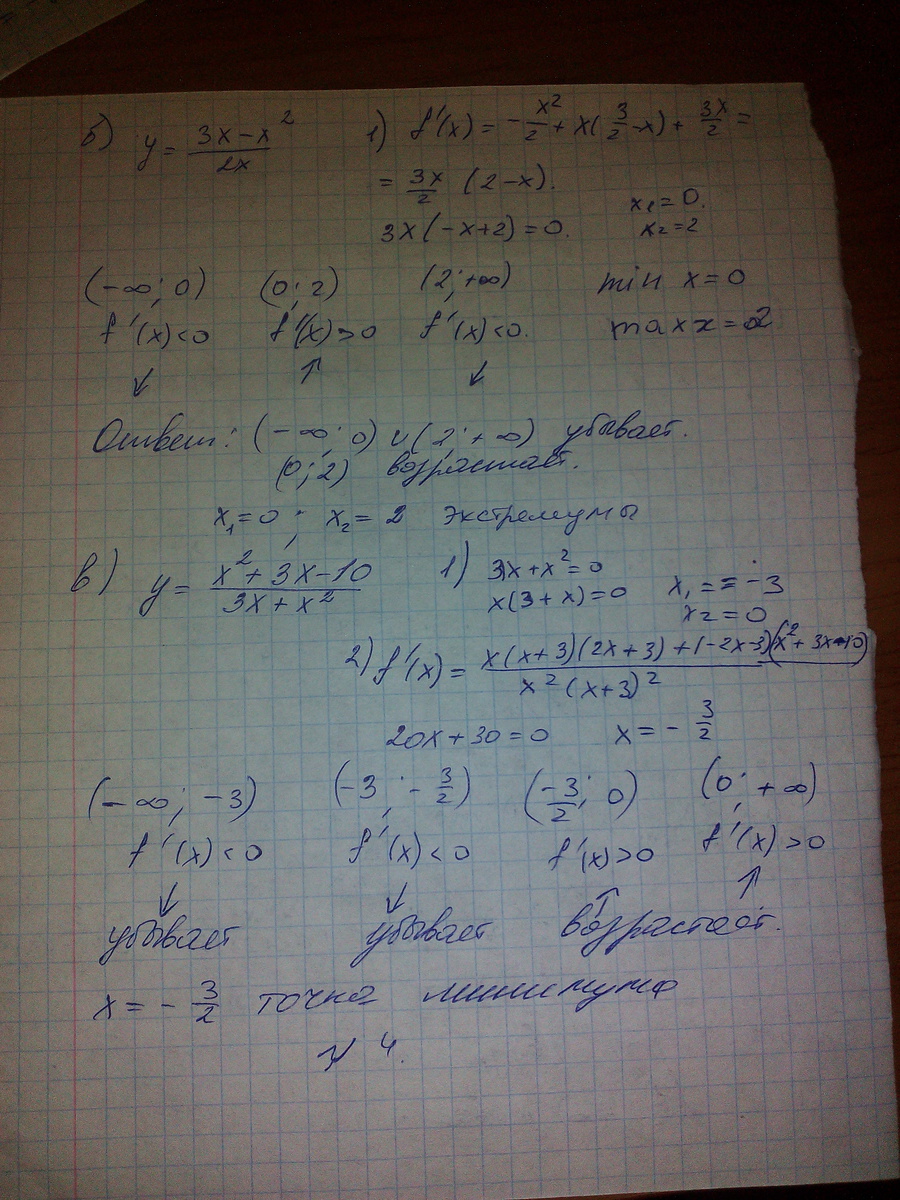 б) y = (3x - x²)/(2x)   1) f'(x) = -x²/2 + x(3/2 - x) + 3x/2 =
= 3x/2 (2-x).
3x(-x+2) = 0.   x₁ = 0.
x₂ = 2
(-∞; 0)   (0; 2)   (2; +∞)   min x = 0
f'(x) < 0   f'(x) > 0   f'(x) < 0.   max x = 2
↓   ↑   ↓
Ответ: (-∞; 0) и (2; +∞) убывает.
(0; 2) возрастает.
x₁ = 0 ; x₂ = 2 экстремумы
в) y = (x² + 3x - 10)/(3x + x²)   1) 3x + x² = 0
x(3 + x) = 0   x₁ = = -3
x₂ = 0
2) f'(x) = (x(x+3)(2x+3) + (-2x-3)(x² + 3x - 10))/(x²(x+3)²)
20x + 30 = 0   x = -3/2
(-∞; -3)   (-3; -3/2)   (-3/2; 0)   (0; +∞)
f'(x) < 0   f'(x) < 0   f'(x) > 0   f'(x) > 0
↓   ↓   ↑   ↑
убывает   убывает   возрастает.
x = -3/2 точка минимума
№ 4.